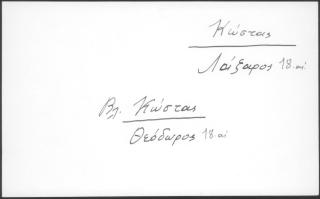 Κώστας
Λάζαρος 18. αἰ
Βλ. Κώστας
Θεόδωρος 18. αἰ